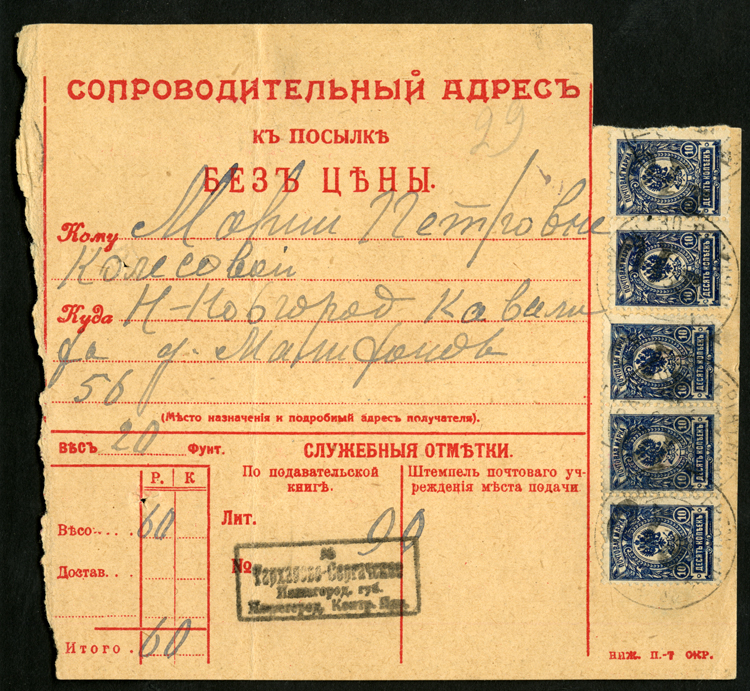 СОПРОВОДИТЕЛЬНЫЙ АДРЕСЪ
КЪ ПОСЫЛКѢ
29
БЕЗЪ ЦѢНЫ.
Кому Марии Петровне
Колесовой
Куда Н-Новгород Кавали
д.
56
(Мѣсто назначенія и подробный адресъ получателя).
ВѢСЪ 20 Фунт.
СЛУЖЕБНЫЯ ОТМѢТКИ.
Р. К
По подавательской
книгѣ.
Штемпель почтоваго уч-
режденія мѣста подачи
Вѣсо 60
Достав.
Итого 60
Лит.
№ 99
Тарханово-Сергачское
Нижегород. губ.
Нижегород. Контр. Нш.
10
ДЕСЯТЬ КОПѢЕКЪ
10
ДЕСЯТЬ КОПѢЕКЪ
10
ДЕСЯТЬ КОПѢЕКЪ
10
ДЕСЯТЬ КОПѢЕКЪ
10
ДЕСЯТЬ КОПѢЕКЪ
НИЖ. П.-Т ОКР.